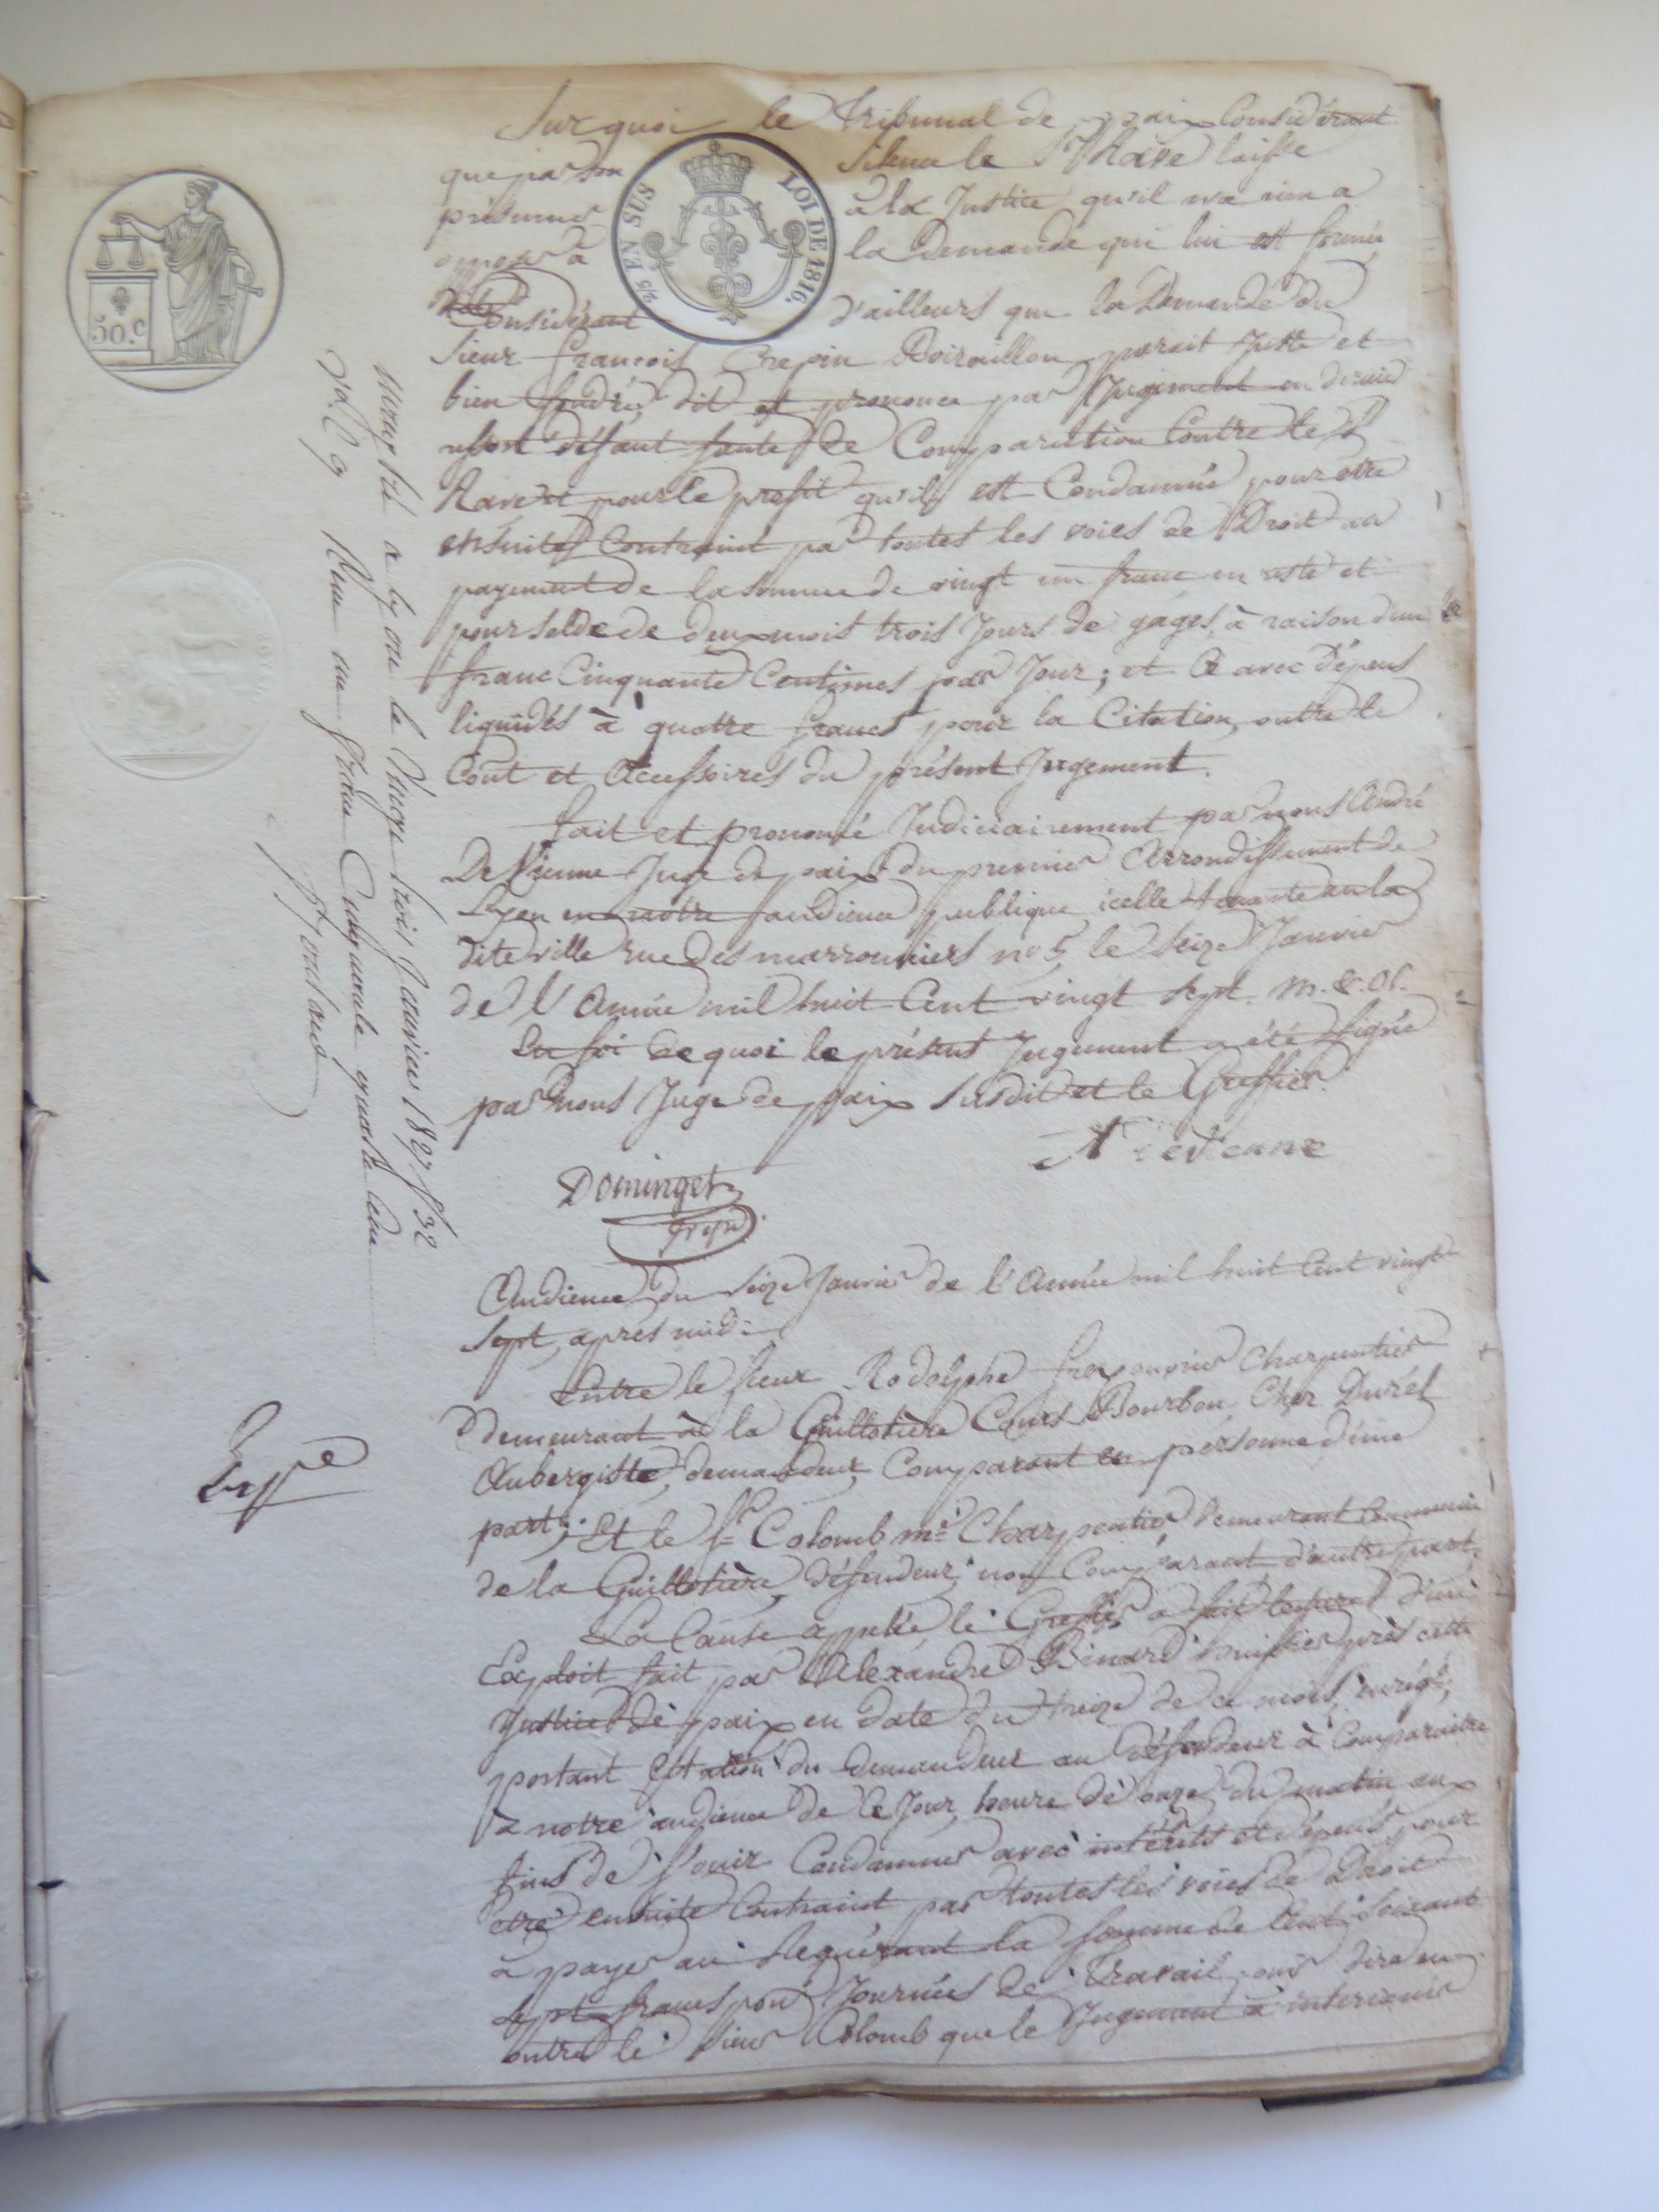 Sur quoi le tribunal de paix Considérant
que par son silence le Sr Rave laisse
présumer à la Justice qu'il n'a rien a
opposer à la demande qui lui est formée
Considérant d'ailleurs que la Demande du
Sieur françois Crepin Boirouillon parait Juste et
bien fondée, dit et prononce par Jugement en dernier
ressort défaut faute de Comparution Contre le Sr
Rave et pour le profit qu'il est Condamné pour etre
ensuite Contraint par toutes les voies de Droit au
payement de la somme de vingt un franc en reste et
pour solde de deux mois trois Jours de gages, à raison d'un
franc Cinquante Centimes par Jour; et Ce avec Dépens
liquidés à quatre francs pour la Citation, outre le
Cout et Accessoires du présent Jugement.
fait et prononcé Judiciairement par nous André
De Vienne Juge de paix du premier Arrondissement de
Lyon en notre audience publique icelle tenante en la
dite ville rue des marronniers no 5, le seize Janvier
de l'Année mil huit Cent vingt sept.
En foi de quoi le présent Jugement a été signé
par nous Juge de paix susdit et le Greffier.
Dominget
greff.
Audience du seize Janvier de l'Année mil huit Cent vingt
Sept, après midi
Entre le sieur Rodolphe Charpentier
demeurant à la Guillotière Cours Bourbon, Chez Duret
Aubergiste, demandeur, Comparant en personne, d'une
part; Et le Sr Colomb me Charpentier demeurant Commune
de la Guillotière, défendeur, non Comparant d'autre part.
La Cause appelée, le Greffier a fait lecture d'un
Exploit fait par Alexandre Binard huissier près cette
Justice de paix en date du treize de ce mois, enregé,
portant Citation du demandeur au défendeur à Comparaitre
a notre audience de Ce Jour, heure de onze du matin aux
fins de s'ouir Condamner avec intérêts et dépens pour
etre ensuite Contraint par toutes les voies de Droit
à payer au Requérant la somme de Cent soixante
sept francs pour Journées de travail, ouir dire en
outre le sieur Colomb que le Jugement à intervenir
50.c
2/5 EN SUS
LOI DE 1816.
Enregistré a lyon le vingt trois Janvier 1827 fo 32
Reçu un franc Cinquante quatre Cen
Expe